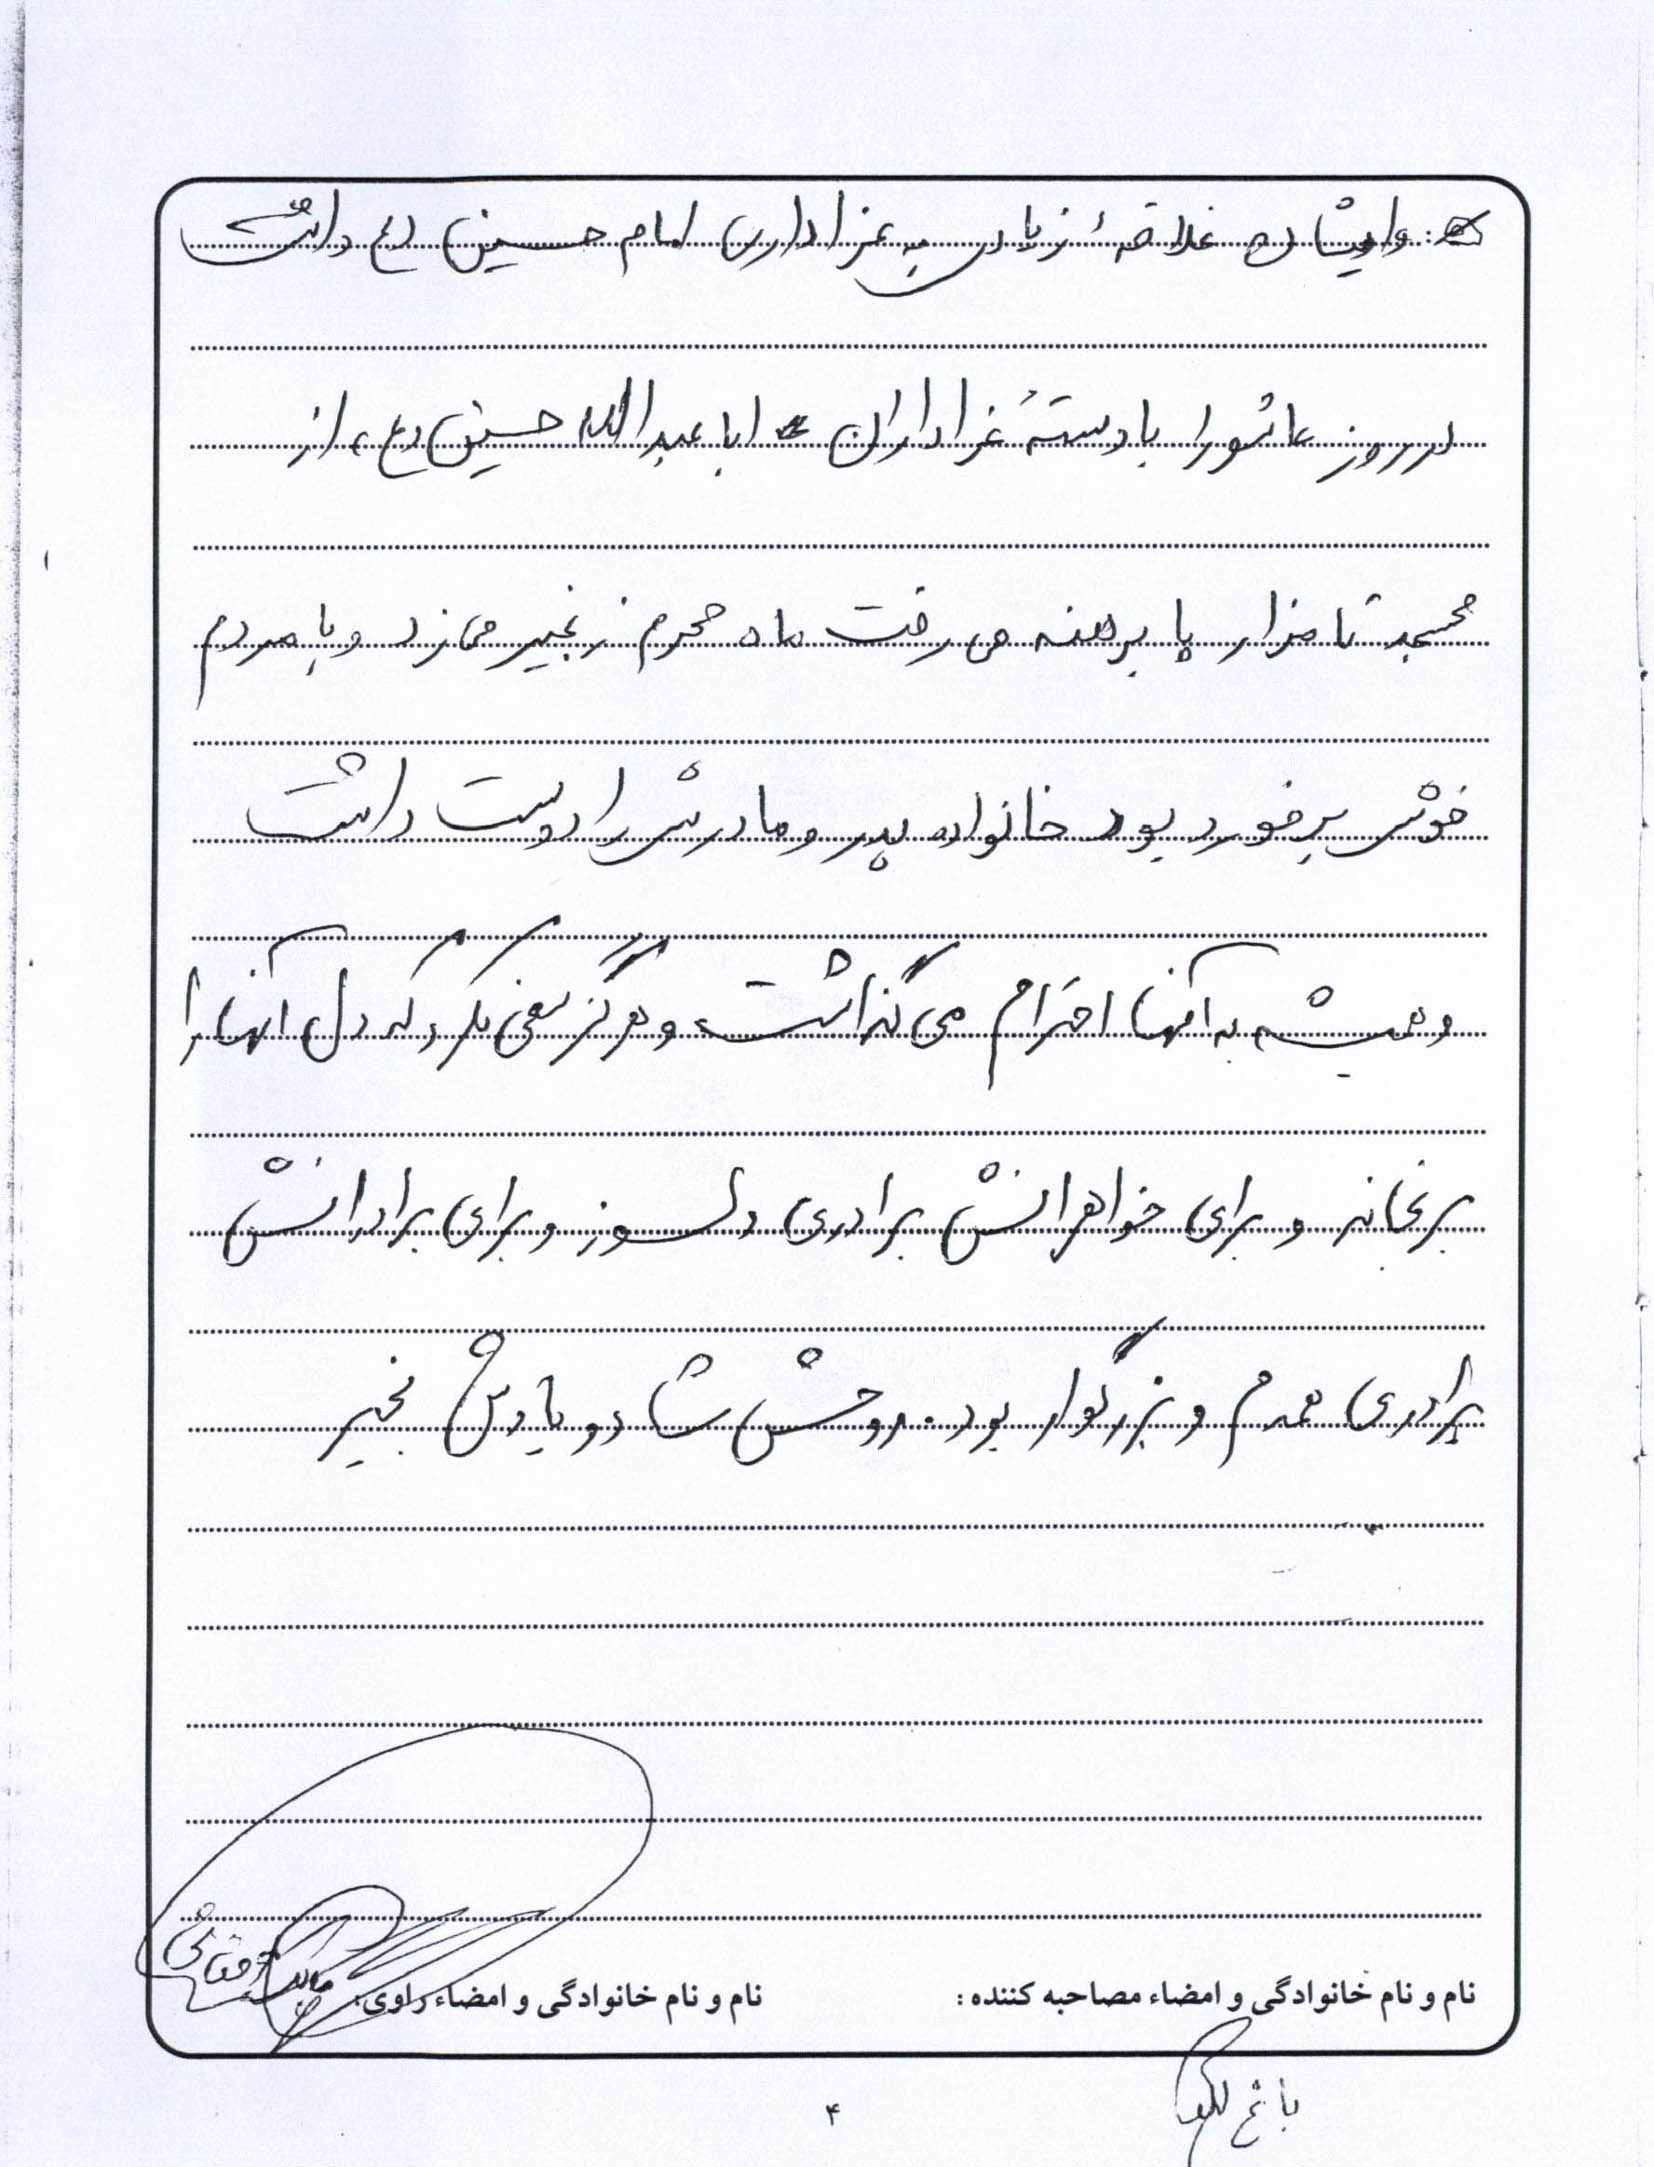 و ایشان علاقهٔ زیادی به عزاداری امام حسین (ع) داشت
در روز عاشورا با دستهٔ عزاداران ابا عبدالله حسین (ع) از
مسجد تا مزار پا برهنه می رفت ماه محرم زنجیر می زد و با مردم
خوش برخورد بود خانواده پدر و مادرش را دوست داشت
و همیشه به آنها احترام می گذاشت و هرگز سعی نکرد که دل آنها را
برنجاند و برای خواهرانش برادری دلسوز و برای برادرانش
برادری همدم و بزرگوار بود. روحش شاد و یادش بخیر
نام و نام خانوادگی و امضاء مصاحبه کننده :
نام و نام خانوادگی و امضاء راوی:
۴